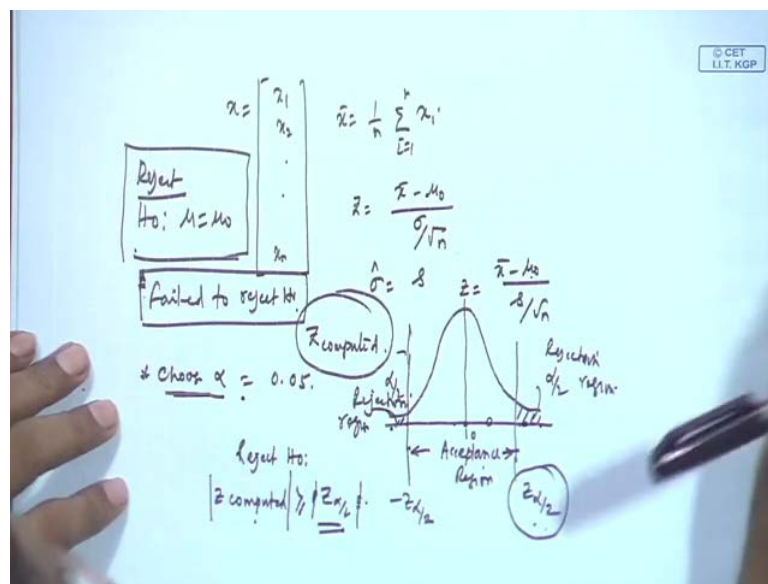 © CET
I.I.T. KGP
x = [x₁ x₂ . . xₙ]
x̄ = 1/n Σ xᵢ
i=1
Reject
H₀: μ = μ₀
z = (x̄ - μ₀) / (σ/√n)
Failed to reject H₀.
σ̂ = s
z = (x̄ - μ₀) / (s/√n)
Z computed.
* Choose α = 0.05.
α/2
Rejection
region
Rejection
α/2 region.
0
Acceptance
Region
Reject H₀:
|Z computed| ≥ |Zα/2|.
-Zα/2
Zα/2